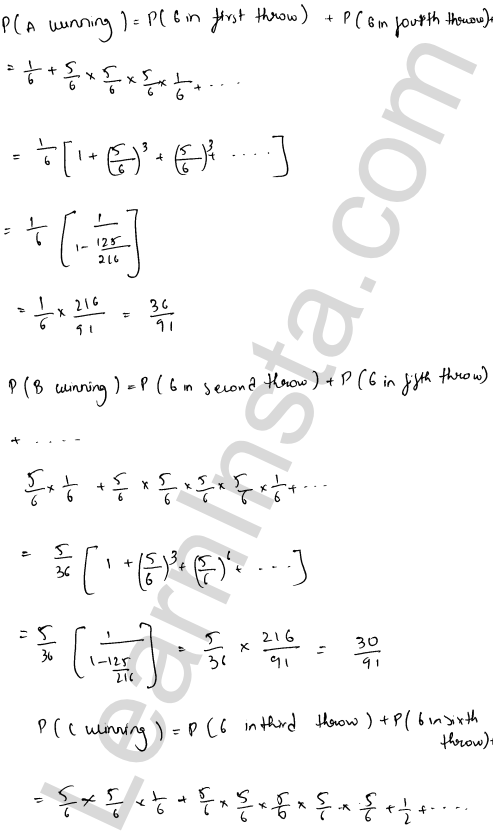 P(A winning) = P(6 in first throw) + P(6 in fourth throw)+
= 1/6 + 5/6 × 5/6 × 5/6 × 1/6 + ...
= 1/6 [1 + (5/6)^3 + (5/6)^3 + ....]
= 1/6 [1/(1 - 125/216)]
= 1/6 × 216/91 = 36/91
P(B winning) = P(6 in second throw) + P(6 in fifth throw)
+ ....
5/6 × 1/6 + 5/6 × 5/6 × 5/6 × 5/6 × 1/6 + ...
= 5/36 [1 + (5/6)^3 + (5/6)^6 + ...]
= 5/36 [1/(1 - 125/216)] = 5/36 × 216/91 = 30/91
P(C winning) = P(6 in third throw) + P(6 in sixth
throw)+
= 5/6 × 5/6 × 1/6 + 5/6 × 5/6 × 5/6 × 5/6 × 5/6 + 1/2 + ....
LearnInsta.com